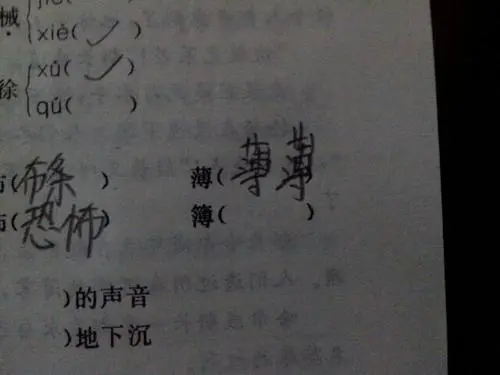 械 xiè( ✓ )
徐 xú( ✓ )
qú( )
(布条 ) 薄(薄薄)
(恐怖) 簿( )
)的声音
)地下沉